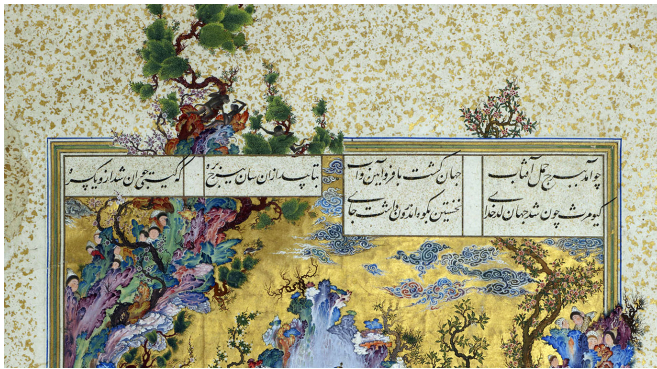 چو آمد ببرج حمل آفتاب جهان گشت با فر و آیین و آب
بتابید ازان سان ز برج بره که گیتی جوان شد ازو یکسره
کیومرث چون شد جهان کدخدای نخستین بکوه اندرون جای